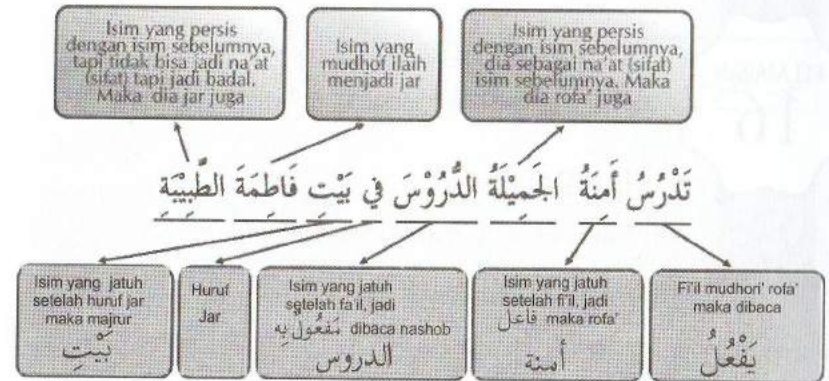 Isim yang persis
dengan isim sebelumnya,
tapi tidak bisa jadi na'at
(sifat) tapi jadi badal.
Maka dia jar juga
Isim yang
mudhof ilaih
menjadi jar
Isim yang persis
dengan isim sebelumnya,
dia sebagai na'at (sifat)
isim sebelumnya. Maka
dia rofa' juga
تَدْرُسُ أَمِنَةُ الجَمِيْلَةُ الدُّرُوْسَ فِي بَيْتِ فَاطِمَةَ الطَّبِيْبَةِ
Isim yang jatuh
setelah huruf jar
maka majrur
بَيْتِ
Huruf
Jar
Isim yang jatuh
setelah fa'il, jadi
مَفْعُولٌ بِهِ dibaca nashob
الدروس
Isim yang jatuh
setelah fi'il, jadi
فاعل maka rofa'
أمنة
Fi'il mudhori' rofa'
maka dibaca
يَفْعُلُ
16